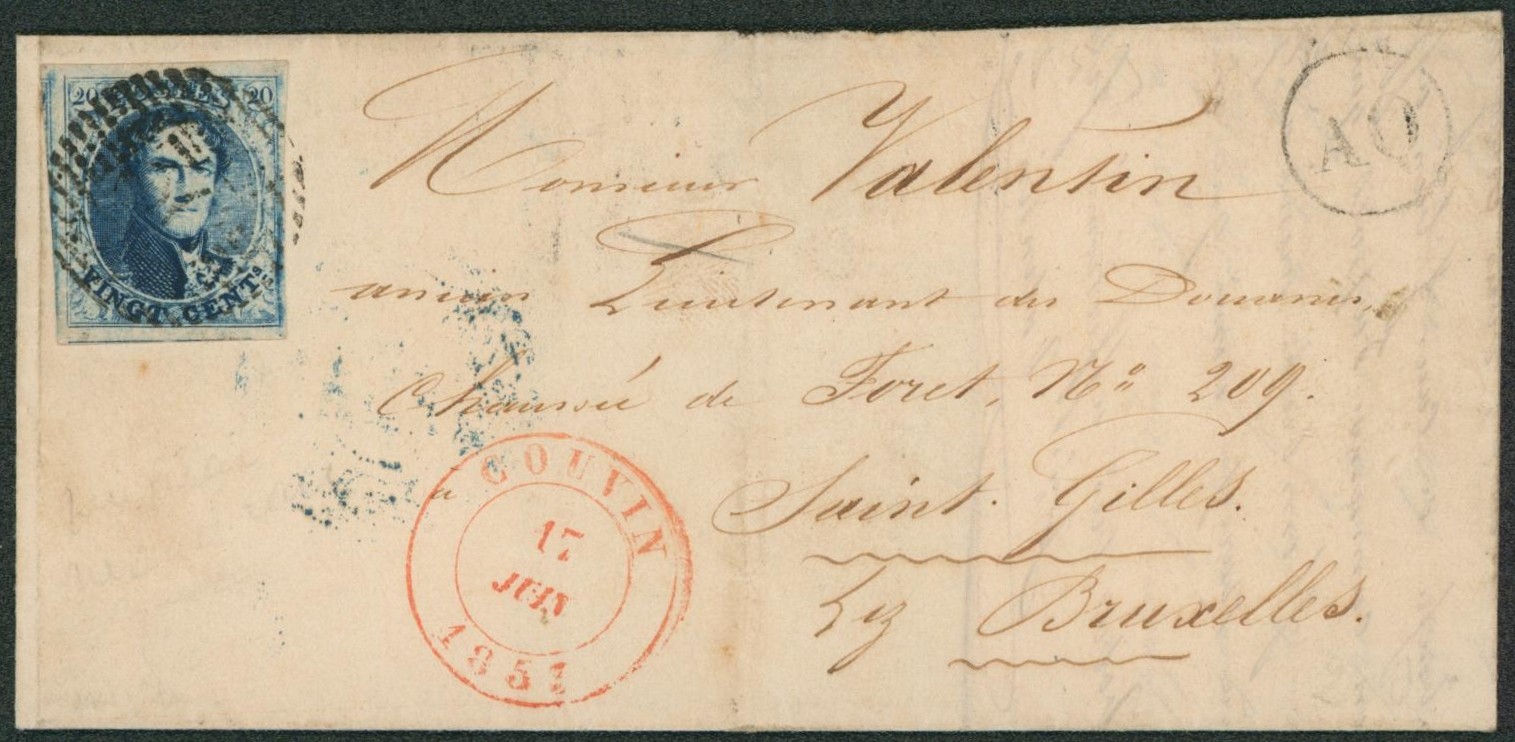 20 POSTES 20
VINGT CENT.ES
AQ
Monsieur Valentin
ancien Lieutenant des Douanes,
Chaussée de Foret, No 209.
à Saint. Gilles.
Lez Bruxelles.
COUVIN
17
JUIN
1851